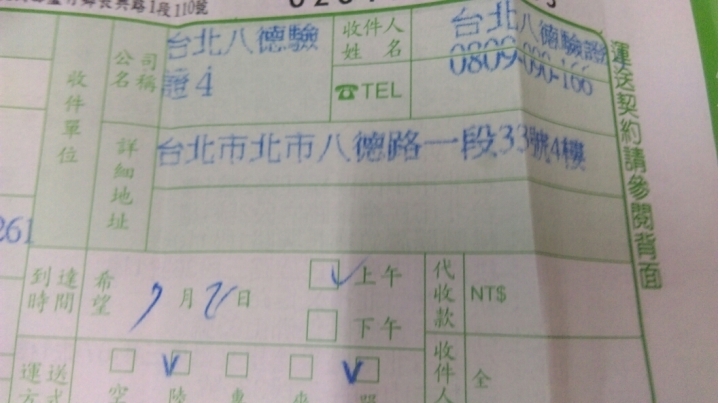 長興路1段110號
收件單位
公司名稱
台北八德驗
證4
收件人姓名
台北八德驗證
0809-090-166
☎TEL
詳細地址
台北市北市八德路一段33號4樓
運送契約請參閱背面
261
到達時間
希望
7月2日
上午
下午
代收款
NT$
運送方式
收件人
全